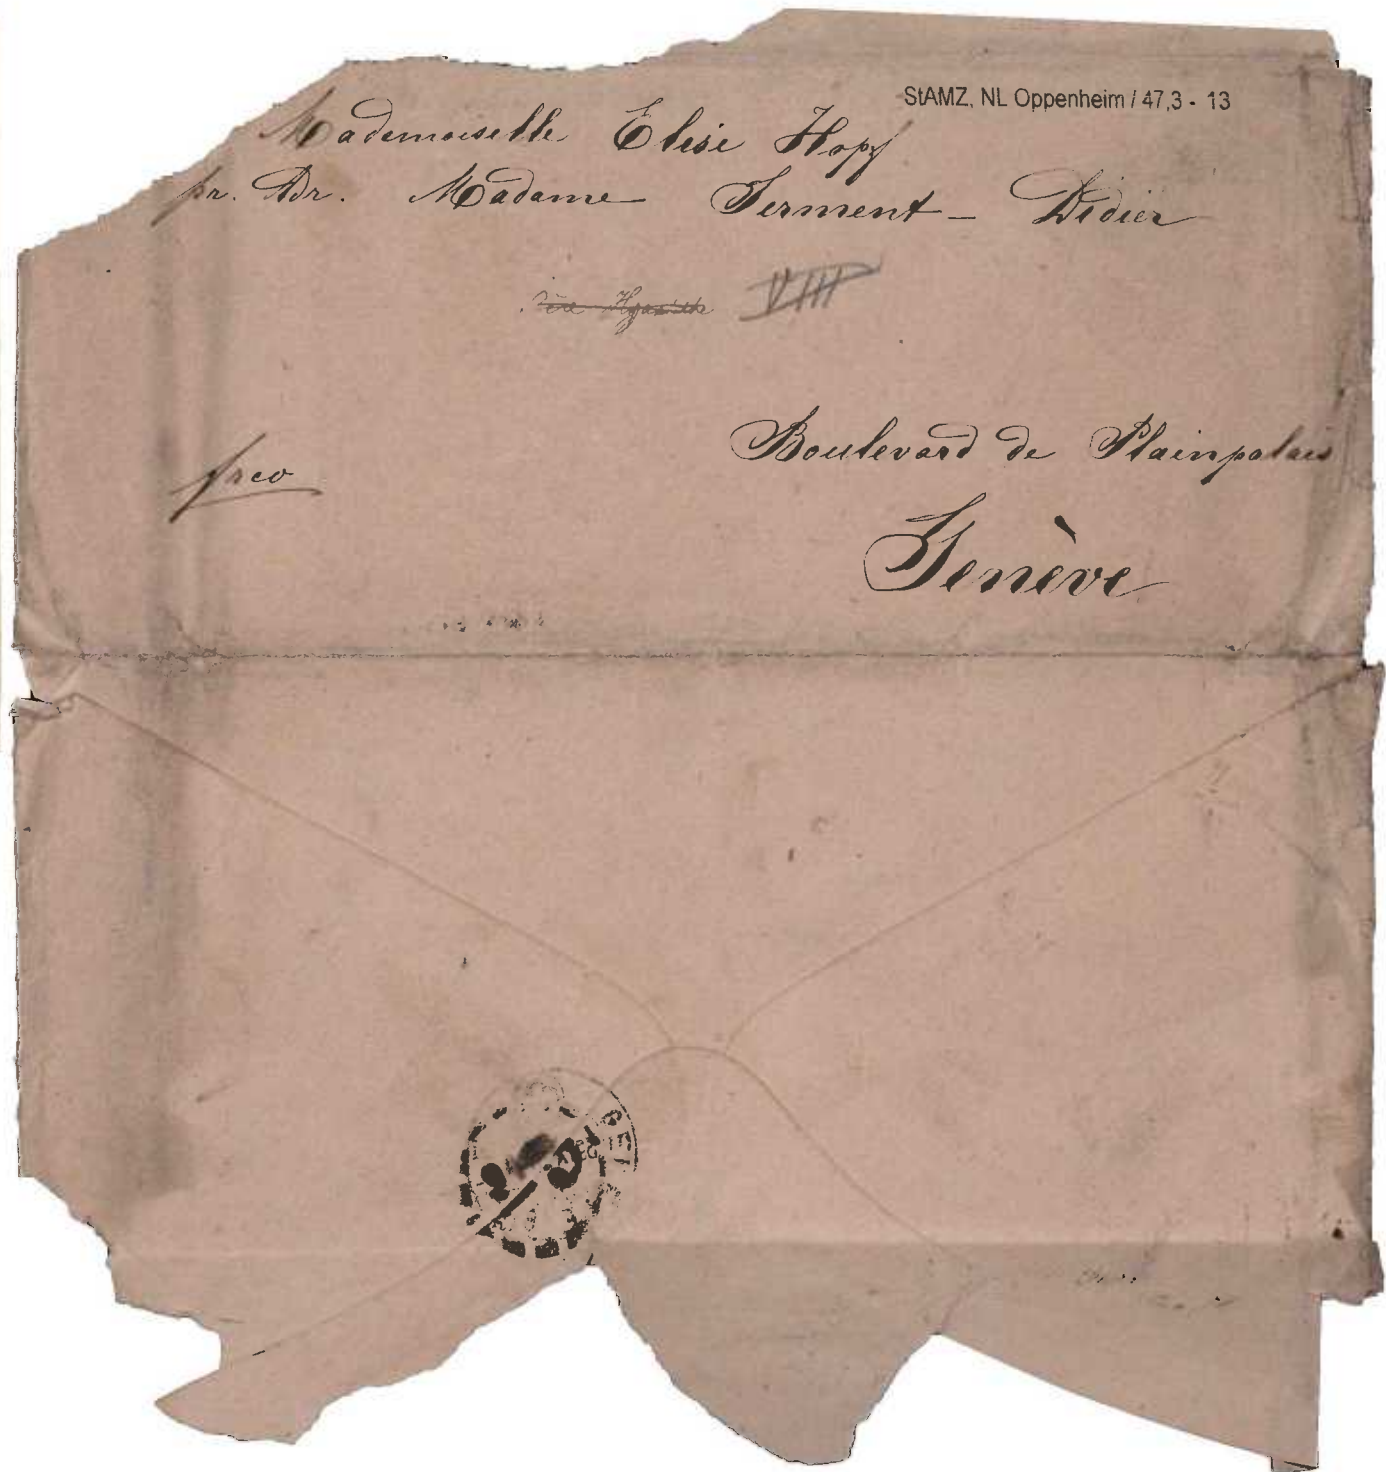 StAMZ, NL Oppenheim / 47,3 - 13
Mademoiselle Elise Hopf
pr. Adr. Madame Serment - Didier
Père Hyacinthe VIII
Boulevard de Plainpalais
frco
Genève